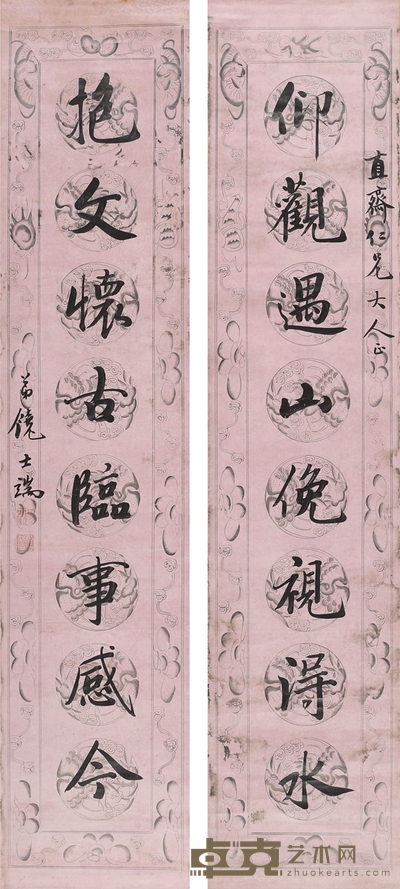 直齋仁兄大人正
仰觀遇山俛視得水
抱文懷古臨事感今
弟饒士瑞
卓克艺术网
zhuokearts.com